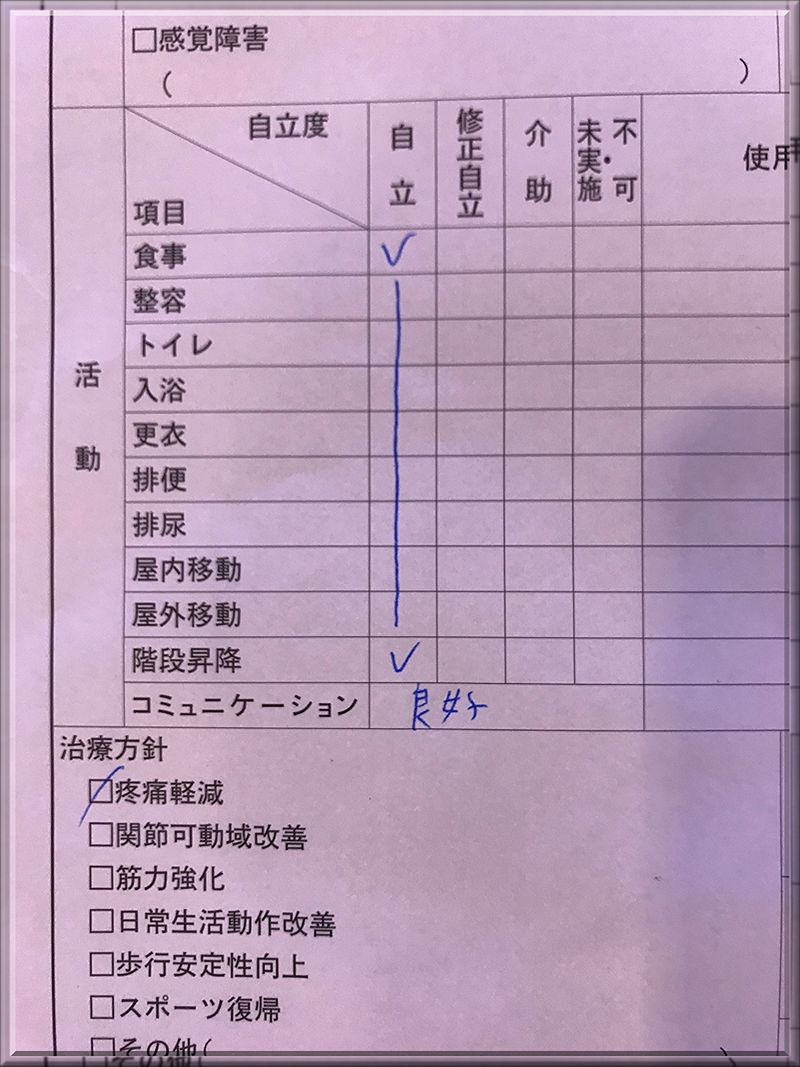 □感覚障害
( )
自立度
項目
自立
修正自立
介助
未実施・不可
使用
活動
食事 ✓
整容
トイレ
入浴
更衣
排便
排尿
屋内移動
屋外移動
階段昇降 ✓
コミュニケーション 良好
治療方針
☑疼痛軽減
□関節可動域改善
□筋力強化
□日常生活動作改善
□歩行安定性向上
□スポーツ復帰
□その他( )